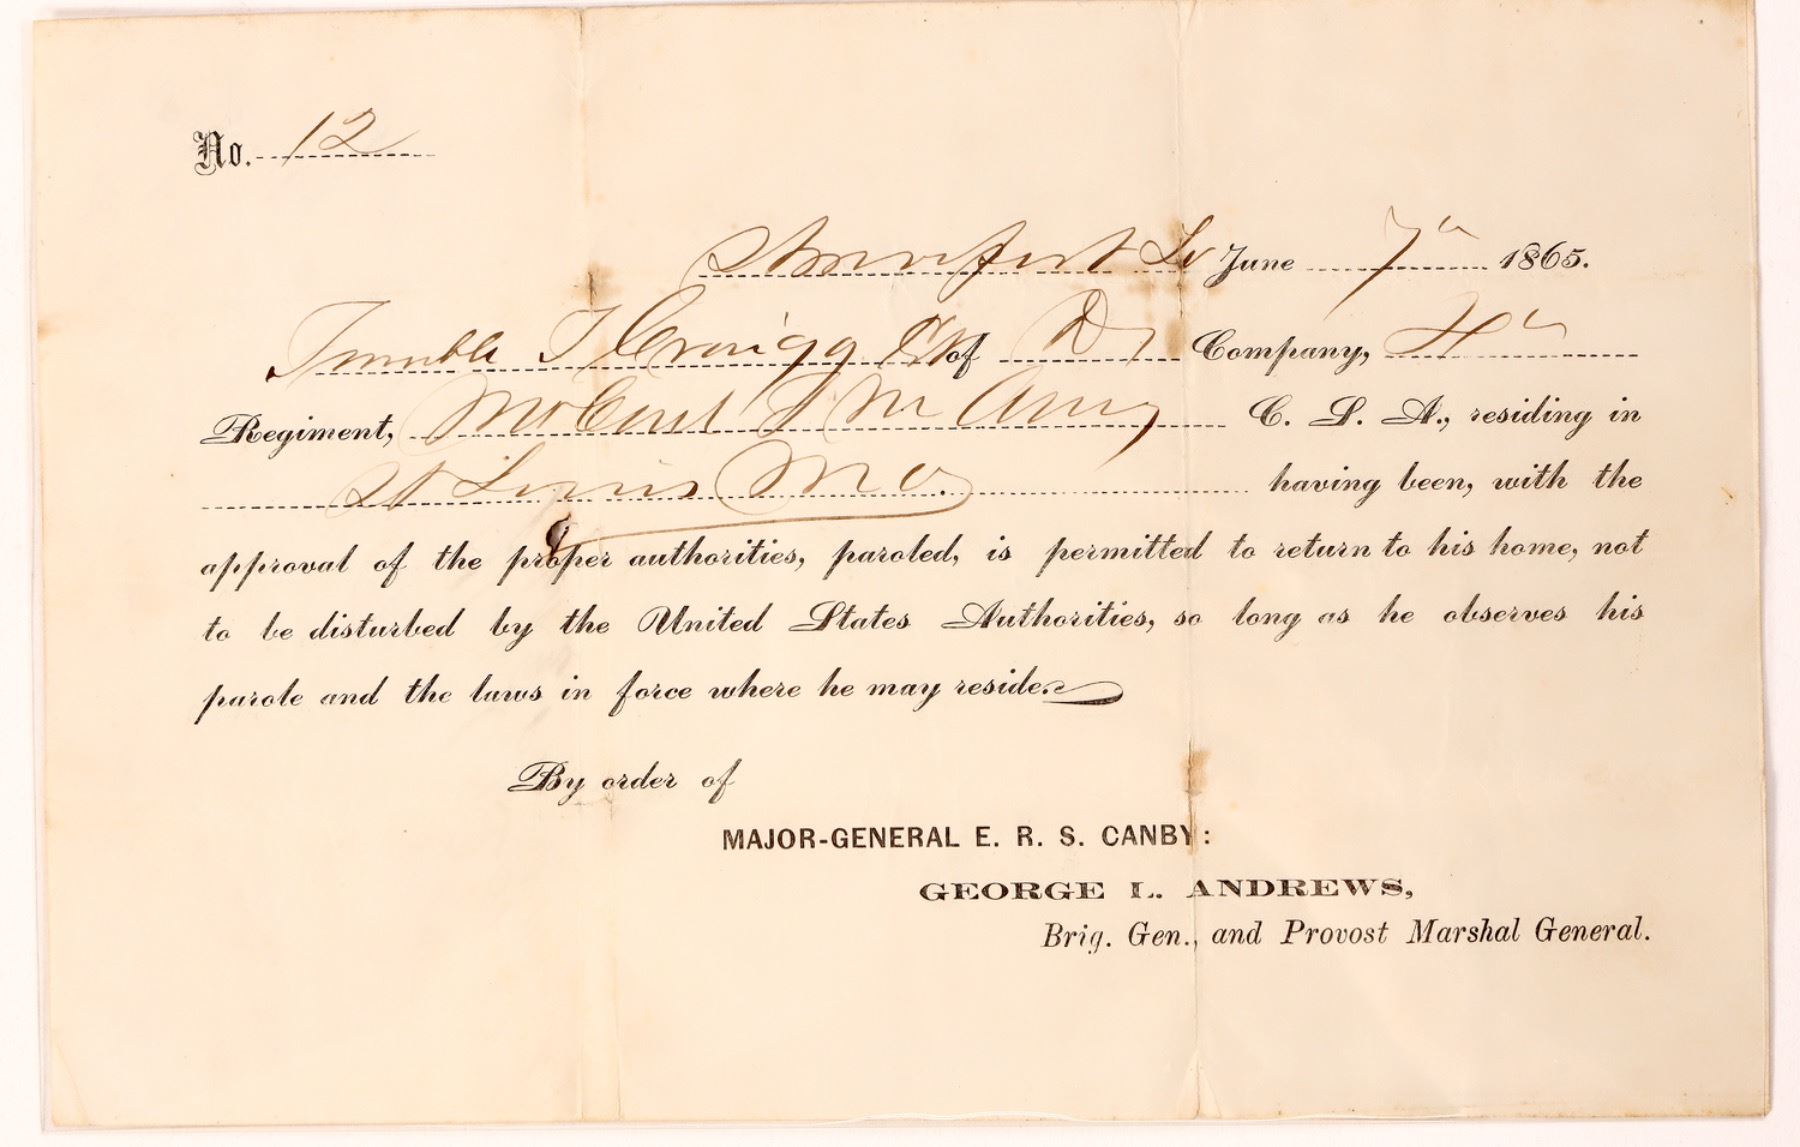 No. 12
Shreveport La June 7" 1865.
Trimble T of D Company,
Regiment, Mo C. S. A., residing in
St Louis Mo. having been, with the
approval of the proper authorities, paroled, is permitted to return to his home, not
to be disturbed by the United States Authorities, so long as he observes his
parole and the laws in force where he may reside.
By order of
MAJOR-GENERAL E. R. S. CANBY:
GEORGE L. ANDREWS,
Brig. Gen., and Provost Marshal General.